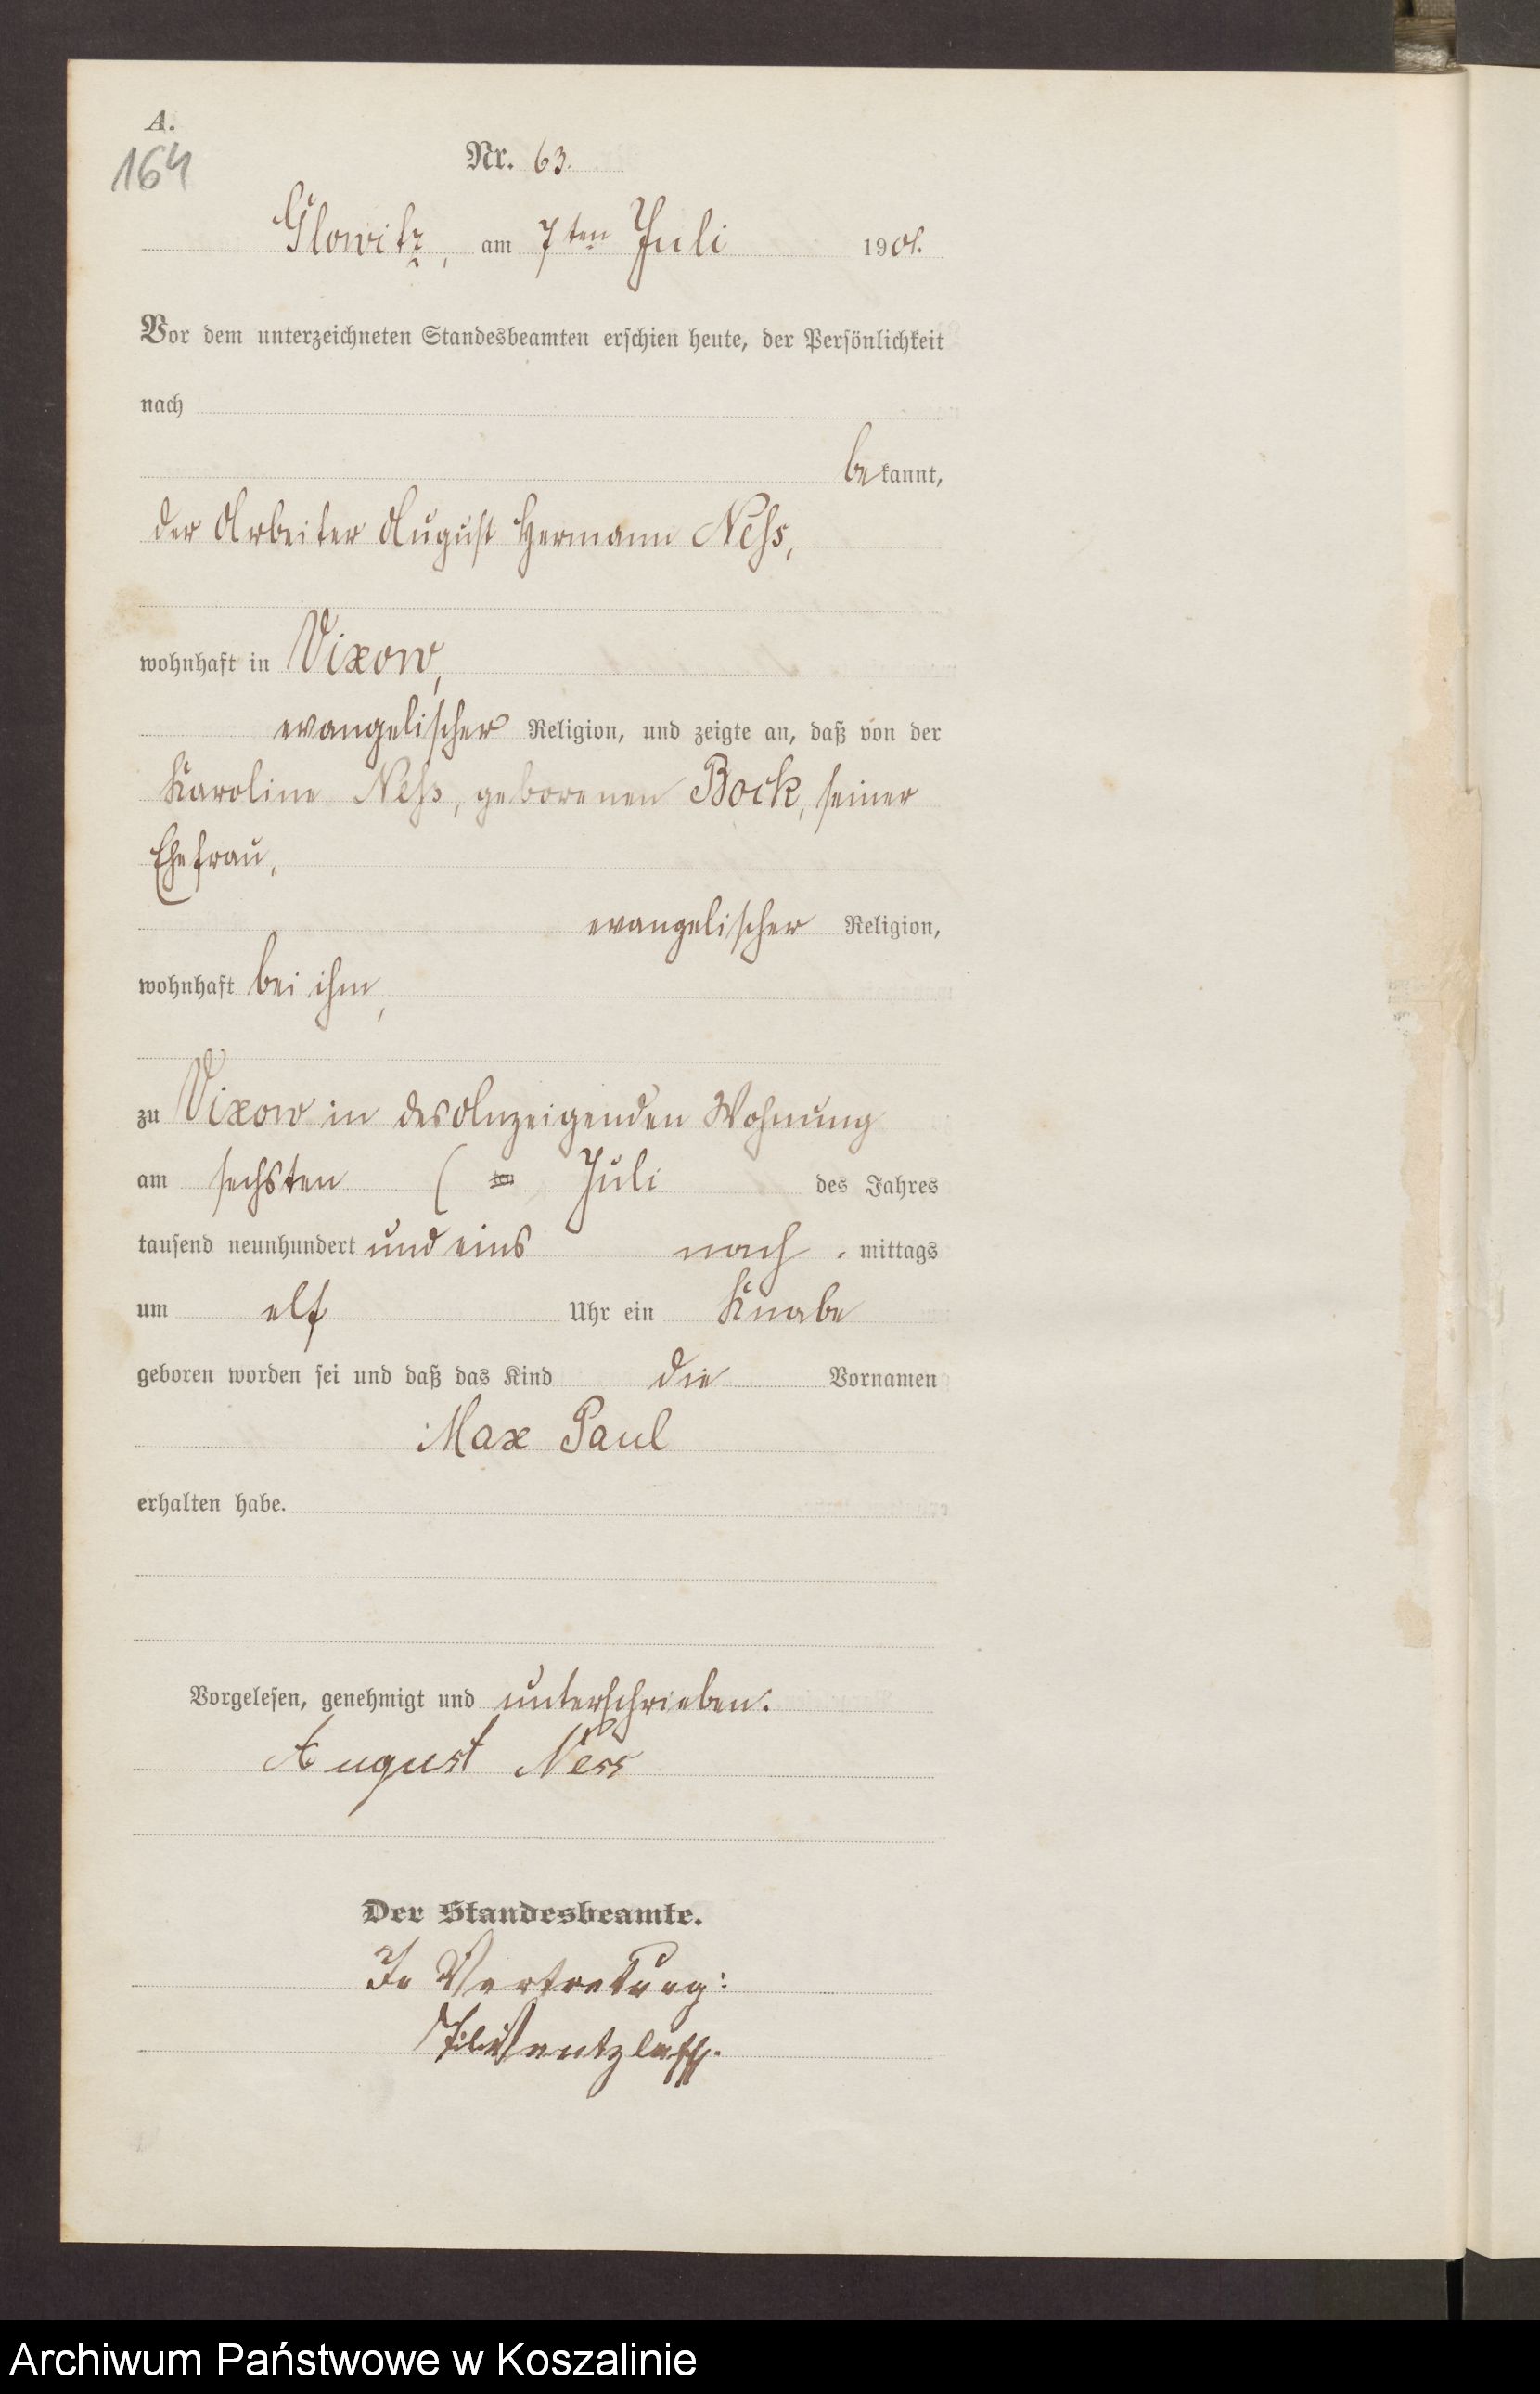 A.
164
Nr. 63.
Glowitz, am 7ten Juli 1901.
Vor dem unterzeichneten Standesbeamten erschien heute, der Persönlichkeit
nach
bekannt,
der Arbeiter August Hermann Neß,
wohnhaft in Vixow,
evangelischer Religion, und zeigte an, daß von der
Karoline Neß, geborenen Bock, seiner
Ehefrau,
evangelischer Religion,
wohnhaft bei ihm,
zu Vixow in des Anzeigenden Wohnung
am sechsten ten Juli des Jahres
tausend neunhundert und eins nach mittags
um elf Uhr ein Knabe
geboren worden sei und daß das Kind die Vornamen
Max Paul
erhalten habe.
Vorgelesen, genehmigt und unterschrieben.
August Ness
Der Standesbeamte.
In Vertretung:
Archiwum Państwowe w Koszalinie